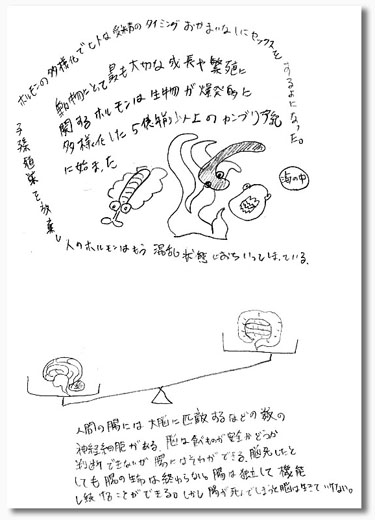 ホルモンの多様化でヒトは受精のタイミングおかまいなしにセックスをするよになった。
動物にとって最も大切な成長や繁殖に
関するホルモンは生物が爆発的に
多様化した5億年以上のカンブリア紀
に始まった
海の中
子孫繁栄を放棄し
人のホルモンはもう混乱状態におちいってしまっている。
人間の腸には大脳に匹敵するほどの数の
神経細胞がある。脳は食べものが安全かどうか
判断できないが腸にはそれができる。脳死したと
しても腸の生命は終わらない。腸は独立して機能
し続けることができる。しかし腸が死んでしまうと脳は生きていけない。